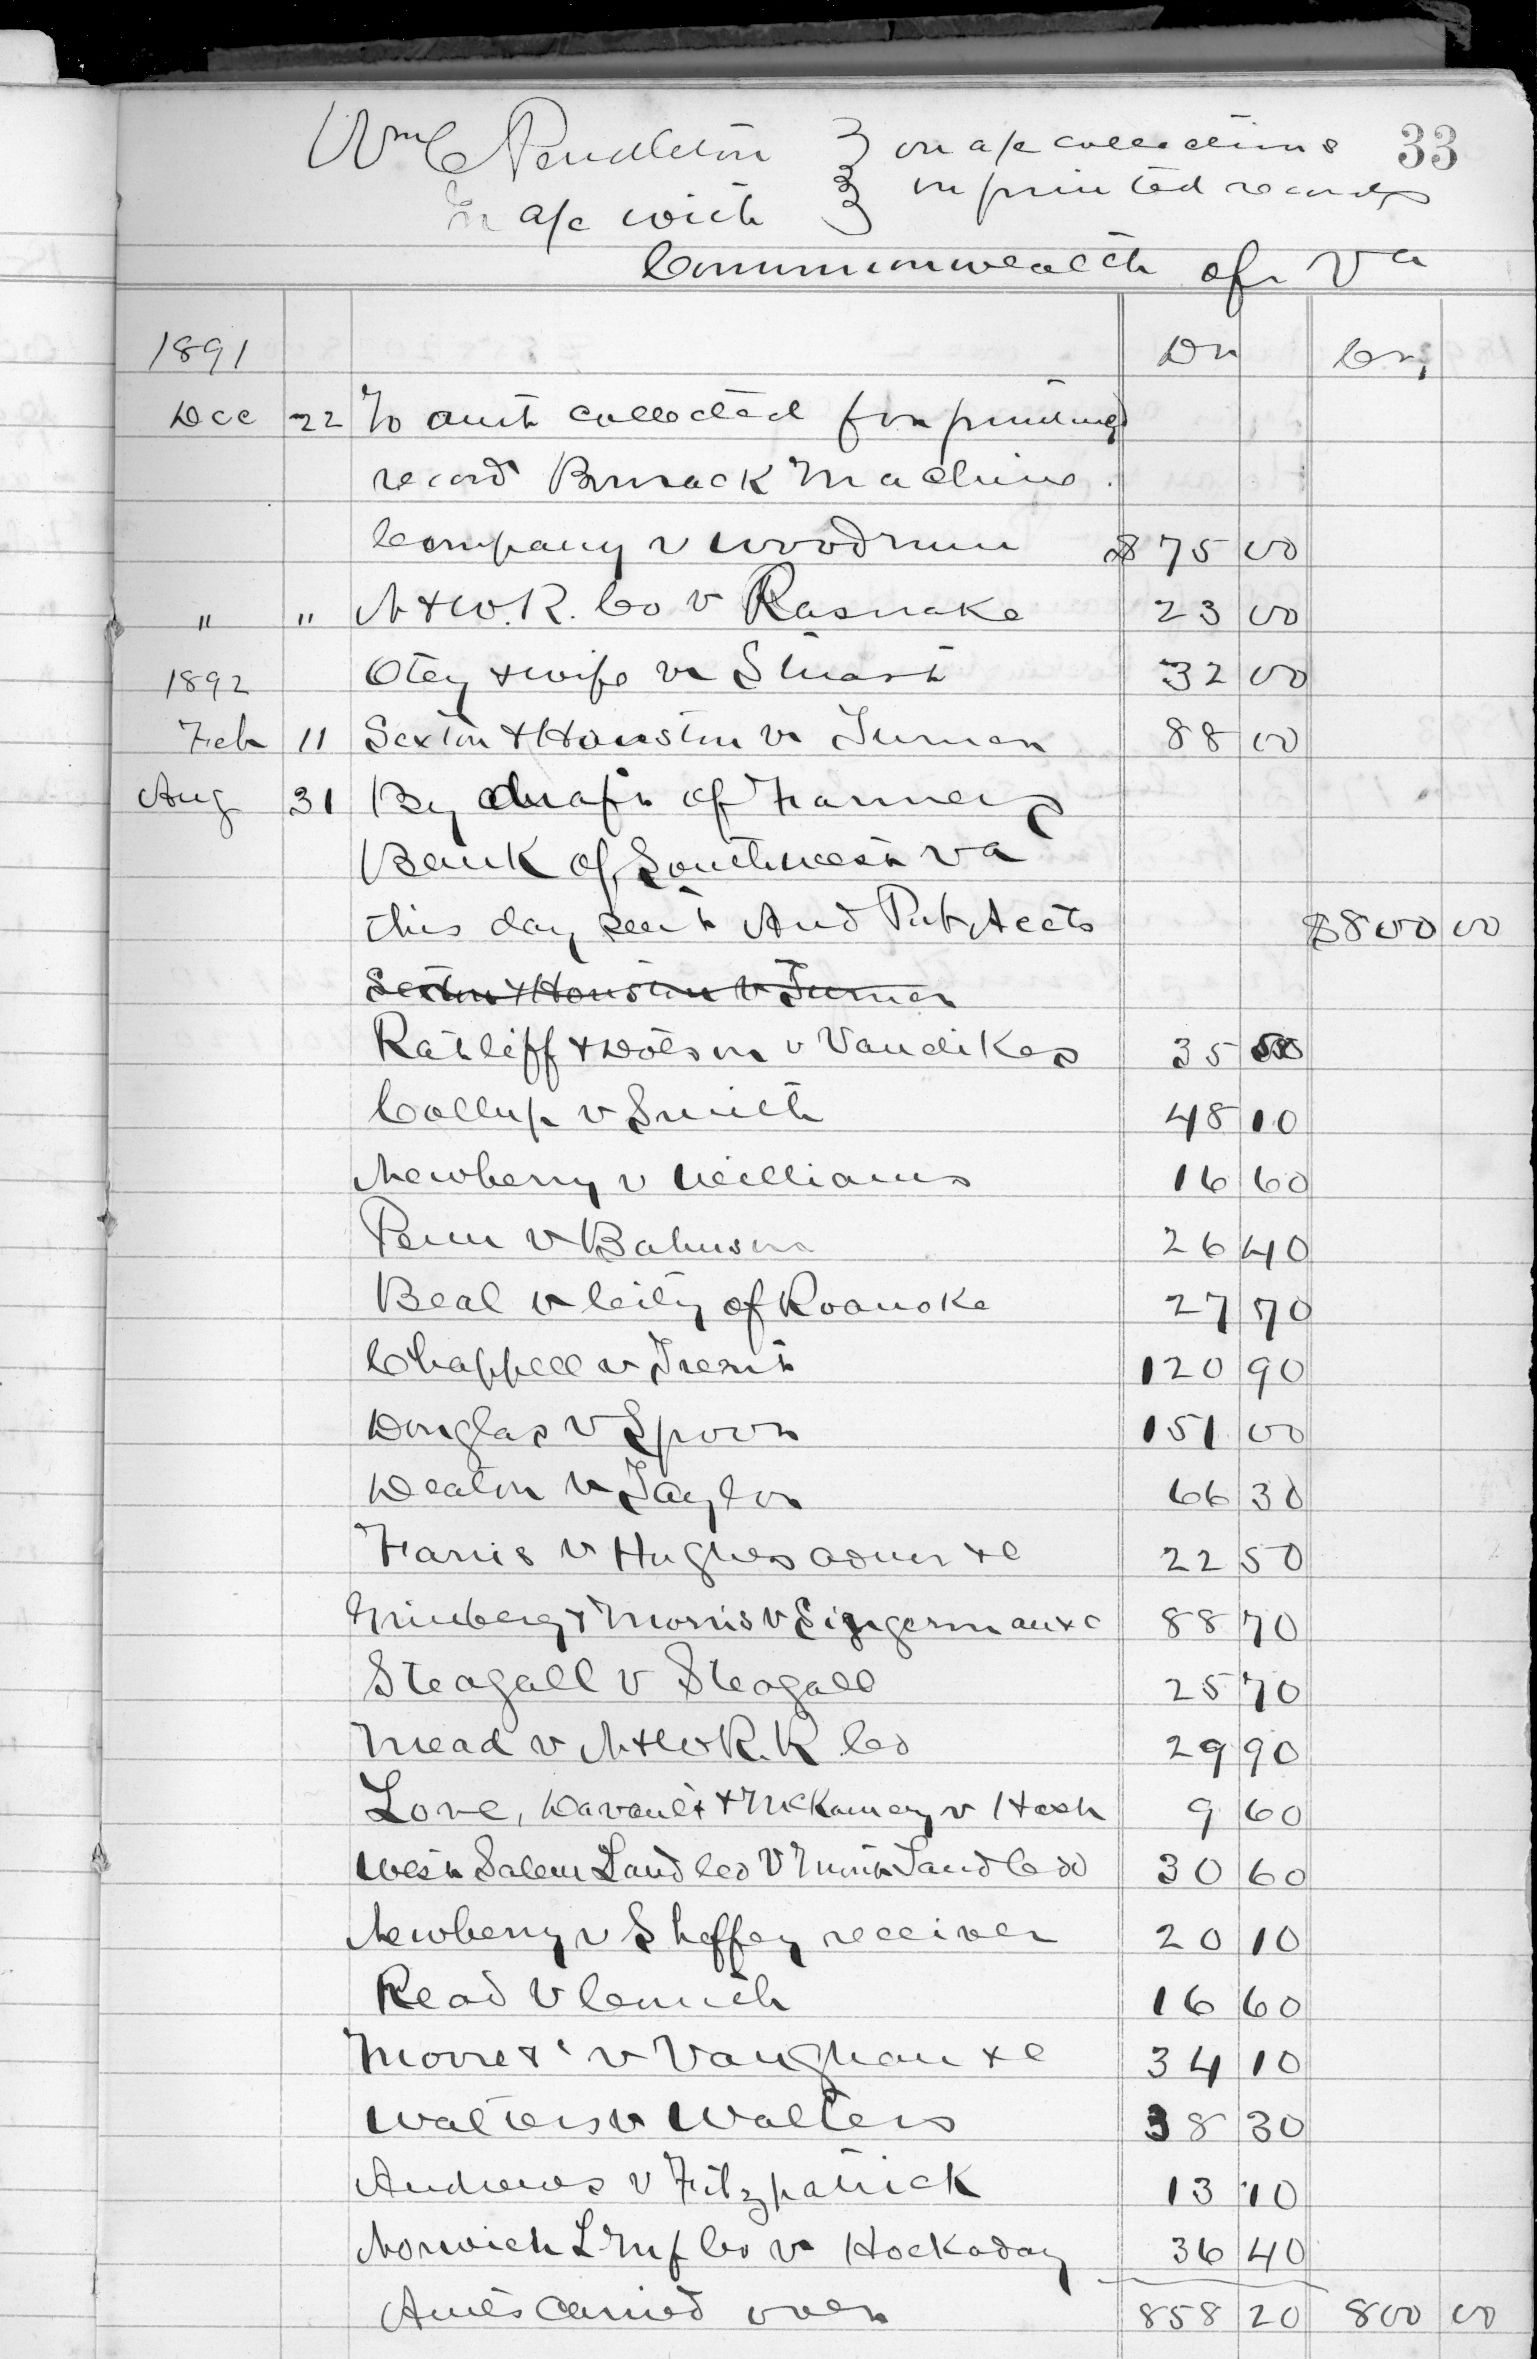 Wm C Pendleton } on a/c collections 33
In a/c with } on printed records
Commonwealth of Va
1891 Dr Cr,
Dec 22 To amt collected for printing
record Brusack Machine
Company v Woodrum $75 00
" " N & W. R. Co v Rasnake 23 00
1892 Otey & wife v Stuart 32 00
Feb 11 Sexton & Houston v Turner 88 00
Aug 31 By draft of Farmers
Bank of Southwest Va
this day sent Aud Pub Accts $800 00
Sexton & Houston v Turner
Ratliff & Dotson v Vandikes 35
Collup v Smith 48 10
Newberry v Williams 16 60
Penn v Bahnson 26 40
Beal v City of Roanoke 27 70
Chappell v Trent 120 90
Douglas v Spoor 151 00
Deaton v Taylor 66 30
Farris v Hughes admr &c 22 50
Grinberg & Morris v Singerman &c 88 70
Steagall v Steagall 25 70
Mead v N & W R. R Co 29 90
Love, Davault & McKamey v Hash 9 60
West Salem Land Co v Land Co 30 60
Newberry v Sheffey receiver 20 10
Read v Cemith 16 60
Moore & v Vaughan &c 34 10
Walters v Walters 38 30
Andrews v Fitzpatrick 13 10
Norwich L Mf Co v Hockaday 36 40
Amts Carried over 858 20 800 00